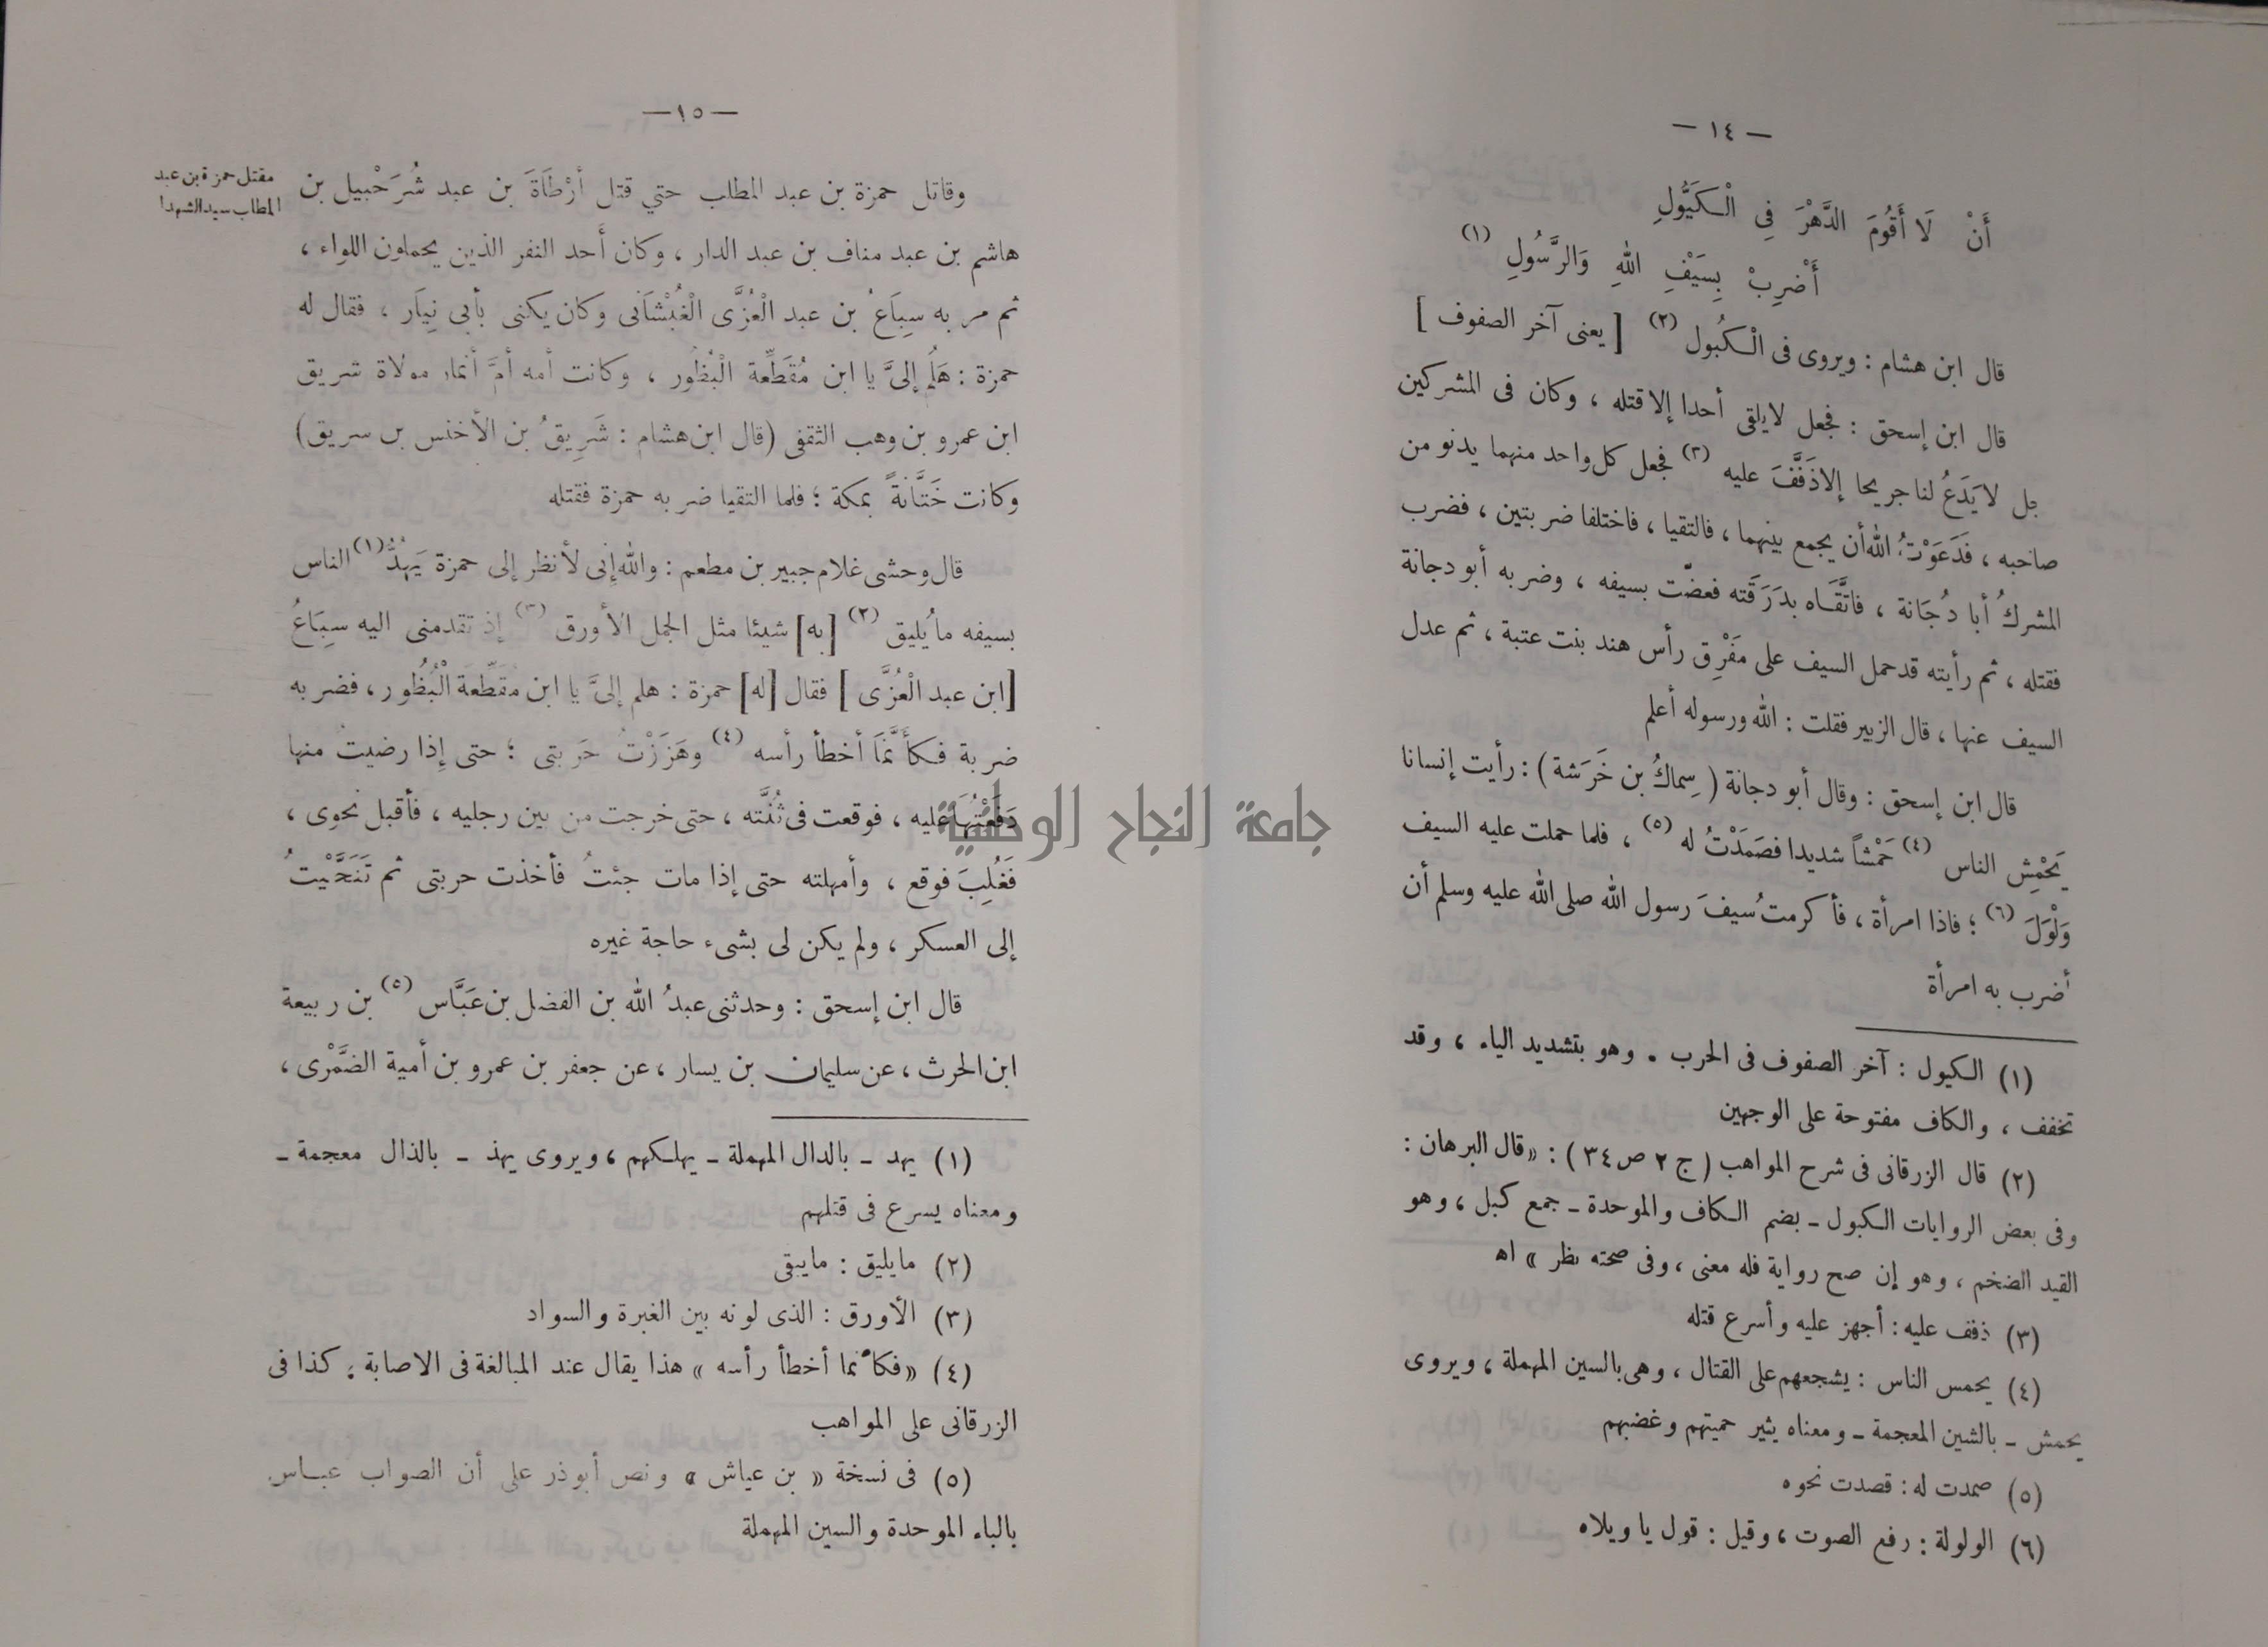 — ١٤ —
أَنْ لَا أَقُومَ الدَّهْرَ فِي الْكَيُّولِ
أَضْرِبْ بِسَيْفِ اللهِ وَالرَّسُولِ (١)
قال ابن هشام : ويروى فى الْكُبُول (٢) [ يعنى آخر الصفوف ]
قال ابن إسحق : فجعل لا يلقى أحدا إلا قتله ، وكان فى المشركين
جل لا يَدَعُ لنا جريحا إلا ذَفَّفَ عليه (٣) فجعل كل واحد منهما يدنو من
صاحبه ، فَدَعَوْتُ الله أن يجمع بينهما ، فالتقيا ، فاختلفا ضربتين ، فضرب
المشركُ أبا دُجَانة ، فاتَّقَاه بدَرَقَته فعضّت بسيفه ، وضربه أبو دجانة
فقتله ، ثم رأيته قد حمل السيف على مَفْرِق رأس هند بنت عتبة ، ثم عدل
السيف عنها ، قال الزبير فقلت : الله ورسوله أعلم
قال ابن إسحق : وقال أبو دجانة ( سِماكُ بن خَرَشة ) : رأيت إنسانا
يَحْمِش الناس (٤) حَمْشاً شديدا فصَمَدْتُ له (٥) ، فلما حملت عليه السيف
وَلْوَلَ (٦) ؛ فاذا امرأة ، فأكرمتُ سيفَ رسول الله صلى الله عليه وسلم أن
أضرب به امرأة
(١) الكيول : آخر الصفوف فى الحرب . وهو بتشديد الياء ، وقد
تخفف ، والكاف مفتوحة على الوجهين
(٢) قال الزرقانى فى شرح المواهب ( ج ٢ ص ٣٤ ) : « قال البرهان :
وفى بعض الروايات الكبول ـ بضم الكاف والموحدة ـ جمع كبل ، وهو
القيد الضخم ، وهو إن صح رواية فله معنى ، وفى صحته نظر » اه
(٣) ذفف عليه : أجهز عليه وأسرع قتله
(٤) يحمس الناس : يشجعهم على القتال ، وهى بالسين المهملة ، ويروى
يحمش ـ بالشين المعجمة ـ ومعناه يثير حميتهم وغضبهم
(٥) صمدت له : قصدت نحوه
(٦) الولولة : رفع الصوت ، وقيل : قول يا ويلاه
— ١٥ —
مقتل حمزة بن عبد
المطلب سيد الشهدا
وقاتل حمزة بن عبد المطلب حتي قتل أرْطَاَةَ بن عبد شُرَحْبيل بن
هاشم بن عبد مناف بن عبد الدار ، وكان أحد النفر الذين يحملون اللواء ،
ثم مر به سِبَاعُ بن عبد الْعُزَّى الْغُبْشَانى وكان يكنى بأبى نِيَار ، فقال له
حمزة : هَلُم إلىَّ يا ابن مُقَطِّعة الْبُظُور ، وكانت أمه أمَّ أنمار مولاة شريق
ابن عمرو بن وهب الثقفى ( قال ابن هشام : شَرِيقُ بن الأخنس بن سريق )
وكانت خَتَّانةً بمكة ؛ فلما التقيا ضربه حمزة فقتله
قال وحشى غلام جبير بن مطعم : والله إنى لأنظر إلى حمزة يَهُدُّ (١) الناس
بسيفه ما يُليق (٢) [به] شيئا مثل الجمل الأورق (٣) إذ تقدمنى اليه سِبَاعُ
[ابن عبد الْعُزَّى ] فقال [له] حمزة : هلم إلىَّ يا ابن مُقَطِّعَة الْبُظُور ، فضربه
ضربة فكأَنَّمَا أخطأ رأسه (٤) وهَزَزْتُ حَربتى ؛ حتى إذا رضيتُ منها
دَفَعْتُهَا عليه ، فوقعت فى ثُنَّته ، حتى خرجت من بين رجليه ، فأقبل نحوى ،
فَغُلِبَ فوقع ، وأمهلته حتى إذا مات جئتُ فأخذت حربتى ثم تَنَحَّيْتُ
إلى العسكر ، ولم يكن لى بشىء حاجة غيره
قال ابن إسحق : وحدثنى عبدُ الله بن الفضل بن عَبَّاس (٥) بن ربيعة
ابن الحرث ، عن سليمان بن يسار ، عن جعفر بن عمرو بن أمية الضَّمْرى ،
(١) يهد ـ بالدال المهملة ـ يهلكهم ، ويروى يهذ ـ بالذال معجمة ـ
ومعناه يسرع فى قتلهم
(٢) مايليق : مايبقى
(٣) الأورق : الذى لونه بين الغبرة والسواد
(٤) « فكأنما أخطأ رأسه » هذا يقال عند المبالغة فى الاصابة . كذا فى
الزرقانى على المواهب
(٥) فى نسخة « بن عياش » ونص أبوذر على أن الصواب عباس
بالباء الموحدة والسين المهملة
جامعة النجاح الوطنية